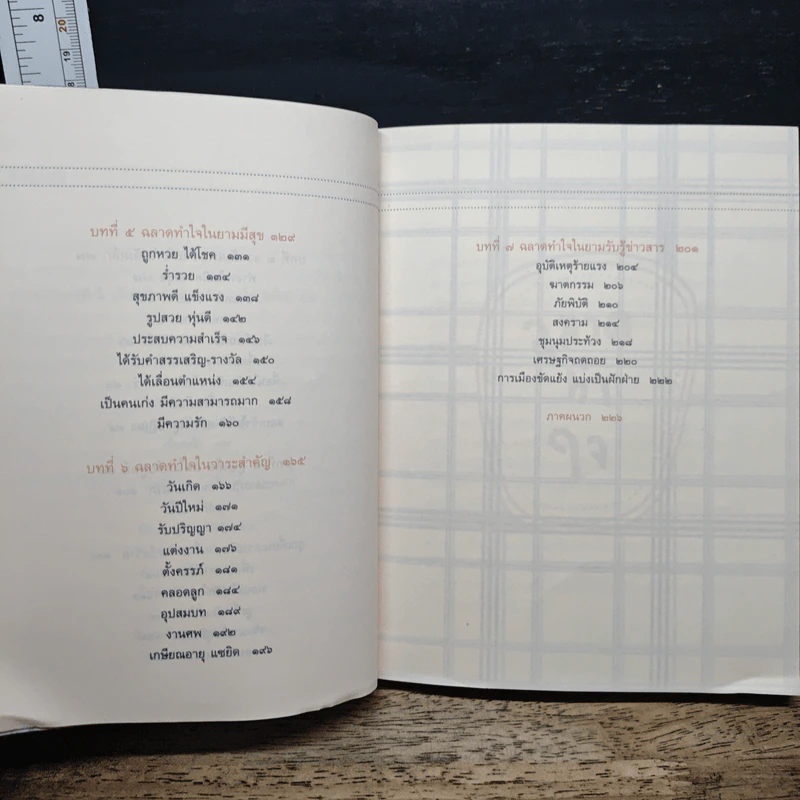 8
20
19
บทที่ ๕ ฉลาดทำใจในยามมีสุข ๑๒๙
ถูกหวย ได้โชค ๑๓๑
ร่ำรวย ๑๓๔
สุขภาพดี แข็งแรง ๑๓๘
รูปสวย หุ่นดี ๑๔๒
ประสบความสำเร็จ ๑๔๖
ได้รับคำสรรเสริญ-รางวัล ๑๕๐
ได้เลื่อนตำแหน่ง ๑๕๔
เป็นคนเก่ง มีความสามารถมาก ๑๕๘
มีความรัก ๑๖๐
บทที่ ๖ ฉลาดทำใจในวาระสำคัญ ๑๖๕
วันเกิด ๑๖๖
วันปีใหม่ ๑๗๑
รับปริญญา ๑๗๔
แต่งงาน ๑๗๖
ตั้งครรภ์ ๑๘๑
คลอดลูก ๑๘๔
อุปสมบท ๑๘๙
งานศพ ๑๙๒
เกษียณอายุ แซยิด ๑๙๖
บทที่ ๗ ฉลาดทำใจในยามรับรู้ข่าวสาร ๒๐๑
อุบัติเหตุร้ายแรง ๒๐๔
ฆาตกรรม ๒๐๖
ภัยพิบัติ ๒๑๐
สงคราม ๒๑๔
ชุมนุมประท้วง ๒๑๘
เศรษฐกิจถดถอย ๒๒๐
การเมืองขัดแย้ง แบ่งเป็นฝักฝ่าย ๒๒๒
ภาคผนวก ๒๒๖